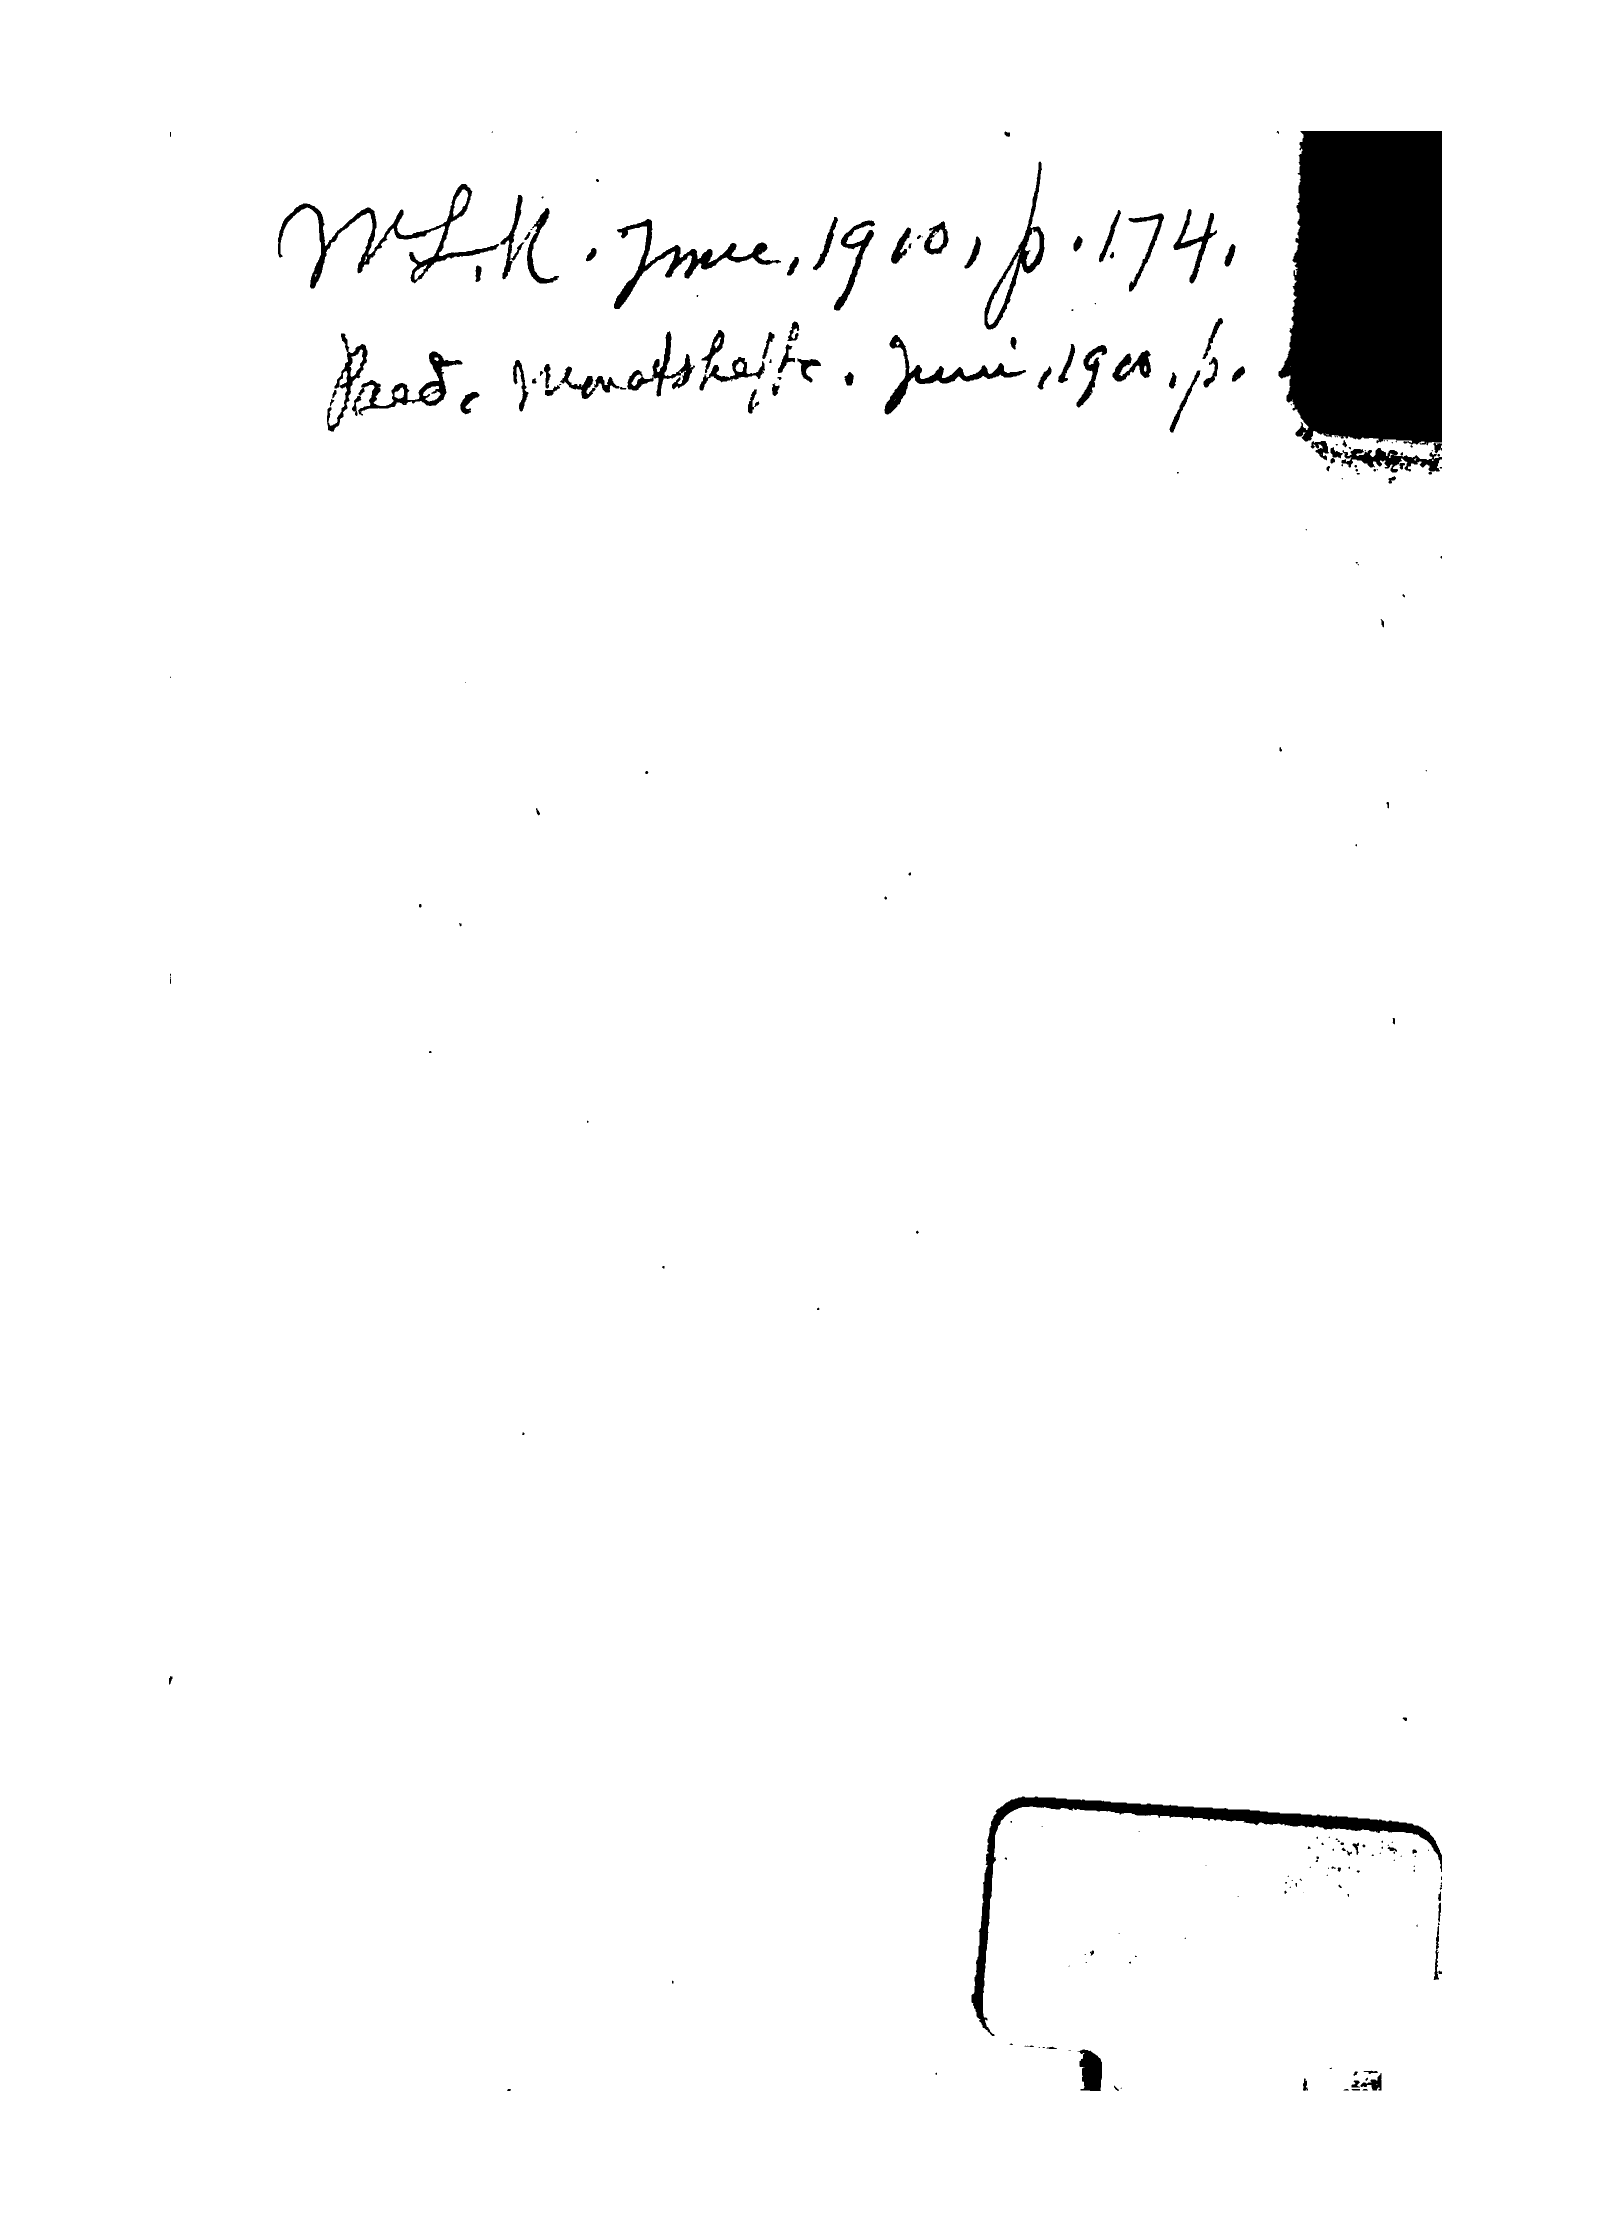 M.L.N. June, 1900, p. 174.
Paed. Monatshefte. Juni, 1900, p.